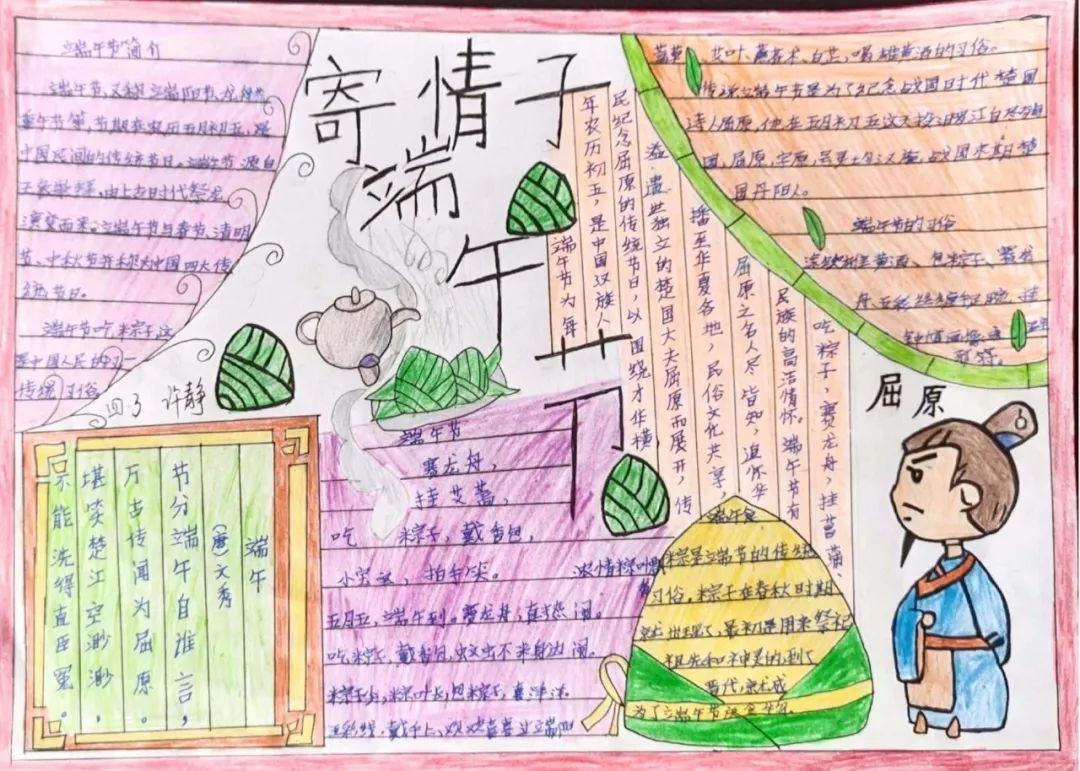 寄情子
端
午
节
端午节简介
端午节,又称端阳节,龙舟节
重午节等,节期在农历五月初五,是
中国民间的传统节日。端午节源自
天象崇拜,由上古时代祭龙
演变而来。端午节与春节、清明
节、中秋节并称为中国四大传
统节日。
端午节吃粽子,这
是中国人民的又一
传统习俗
四.3 许静
艾叶
白芷,喝雄黄酒的习俗。
传说端午节是为了纪念战国时代楚国
诗人屈原,他在五月初五这天投汨罗江自尽殉
国,屈原,
战国末期楚
国丹阳人。
端午节的习俗
包粽子、赛龙
舟、五彩丝线
挂
端午节为每
年农历初五,是中国汉族人
民纪念屈原的传统节日,以围绕才华横
溢、遗世独立的楚国大夫屈原而展开,传
播至华夏各地,民俗文化共享,
屈原之名人尽皆知,追怀华
民族的高洁情怀。端午节有
吃粽子,赛龙舟,挂菖蒲、
屈原
端午
(唐)文秀
节分端午自谁言,
万古传闻为屈原。
堪笑楚江空渺渺,
不能洗得直臣冤。
端午节
赛龙舟,
挂艾蒿,
吃粽子,戴香包,
小宝宝,拍手笑。
五月五,端午到。赛龙舟,真热闹。
吃粽子,戴香包,蚊虫不来身边闹。
粽子香,粽叶长,包粽子,喜洋洋。
五彩线,戴手上、欢欢喜喜过端阳
浓情粽叶
粽是端节的传统
习俗,粽子在春秋时期
就出现了,最初是用来祭祀
祖先和神灵的,到了
晋代,就成
为了端午节